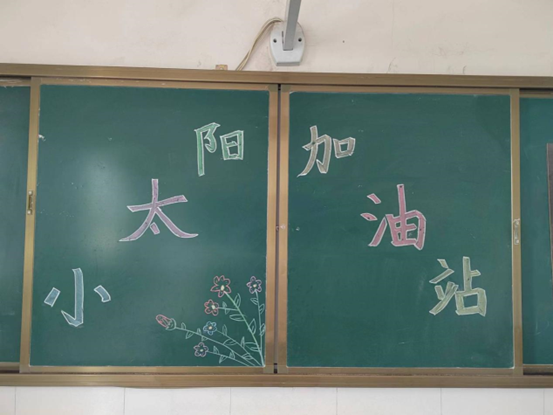 小太阳加油站